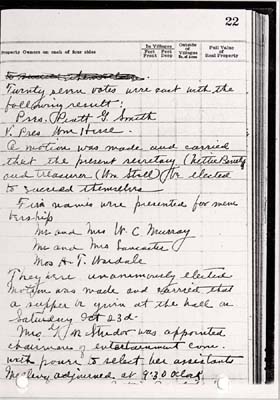 22
Property Owners on each of four sides
In Villages
Feet Front
Feet Deep
Outside of Villages
No. of Acres
Full Value of Real Property
to succeed themselves
Twenty seven votes were cast with the
following result:
Pres. Pratt G. Smith
V. Pres Wm House.
A motion was made and carried
that the present secretary (Nettie
and treasurer (Wm Stull) be elected
to succeed themselves
Five names were presented for mem
bership
Mr and Mrs W. C Murray
Mr and Mrs Lancaster
Mrs H. T. Wardale
They were unanimously elected
Motion was made and carried that
a supper be given at the hall on
Saturday Oct 23d.
Mrs. was appointed
chairman of entertainment com.
with power to select her assistants
Meeting adjourned at 9:30 Oclock